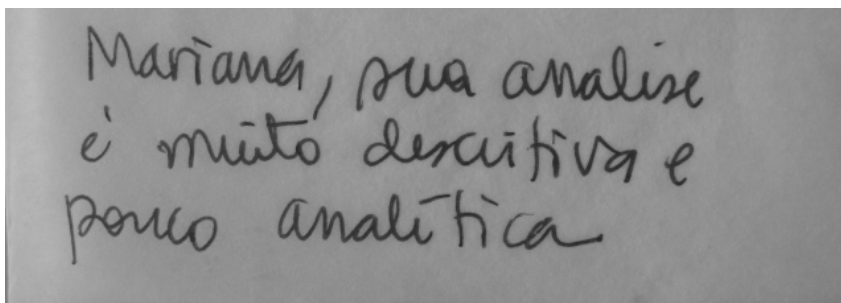 Mariana, sua analise
é muito descritiva e
pouco analítica